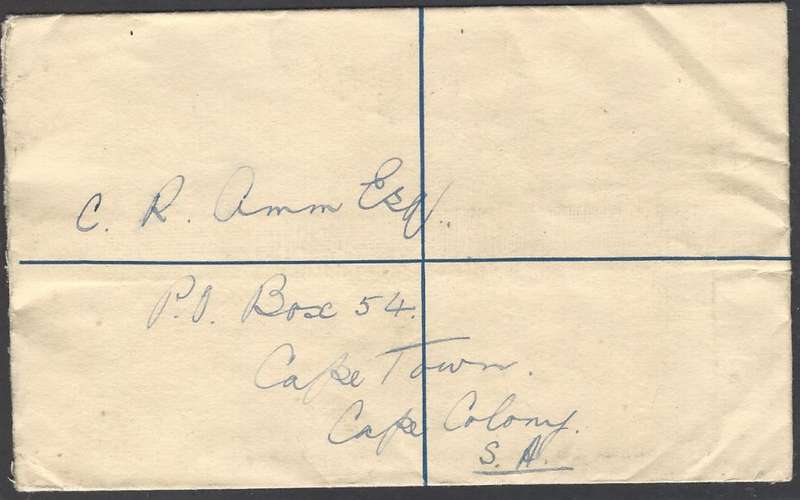 C. R. Amm Esq.
P.O. Box 54.
Cape Town.
Cape Colony.
S. A.